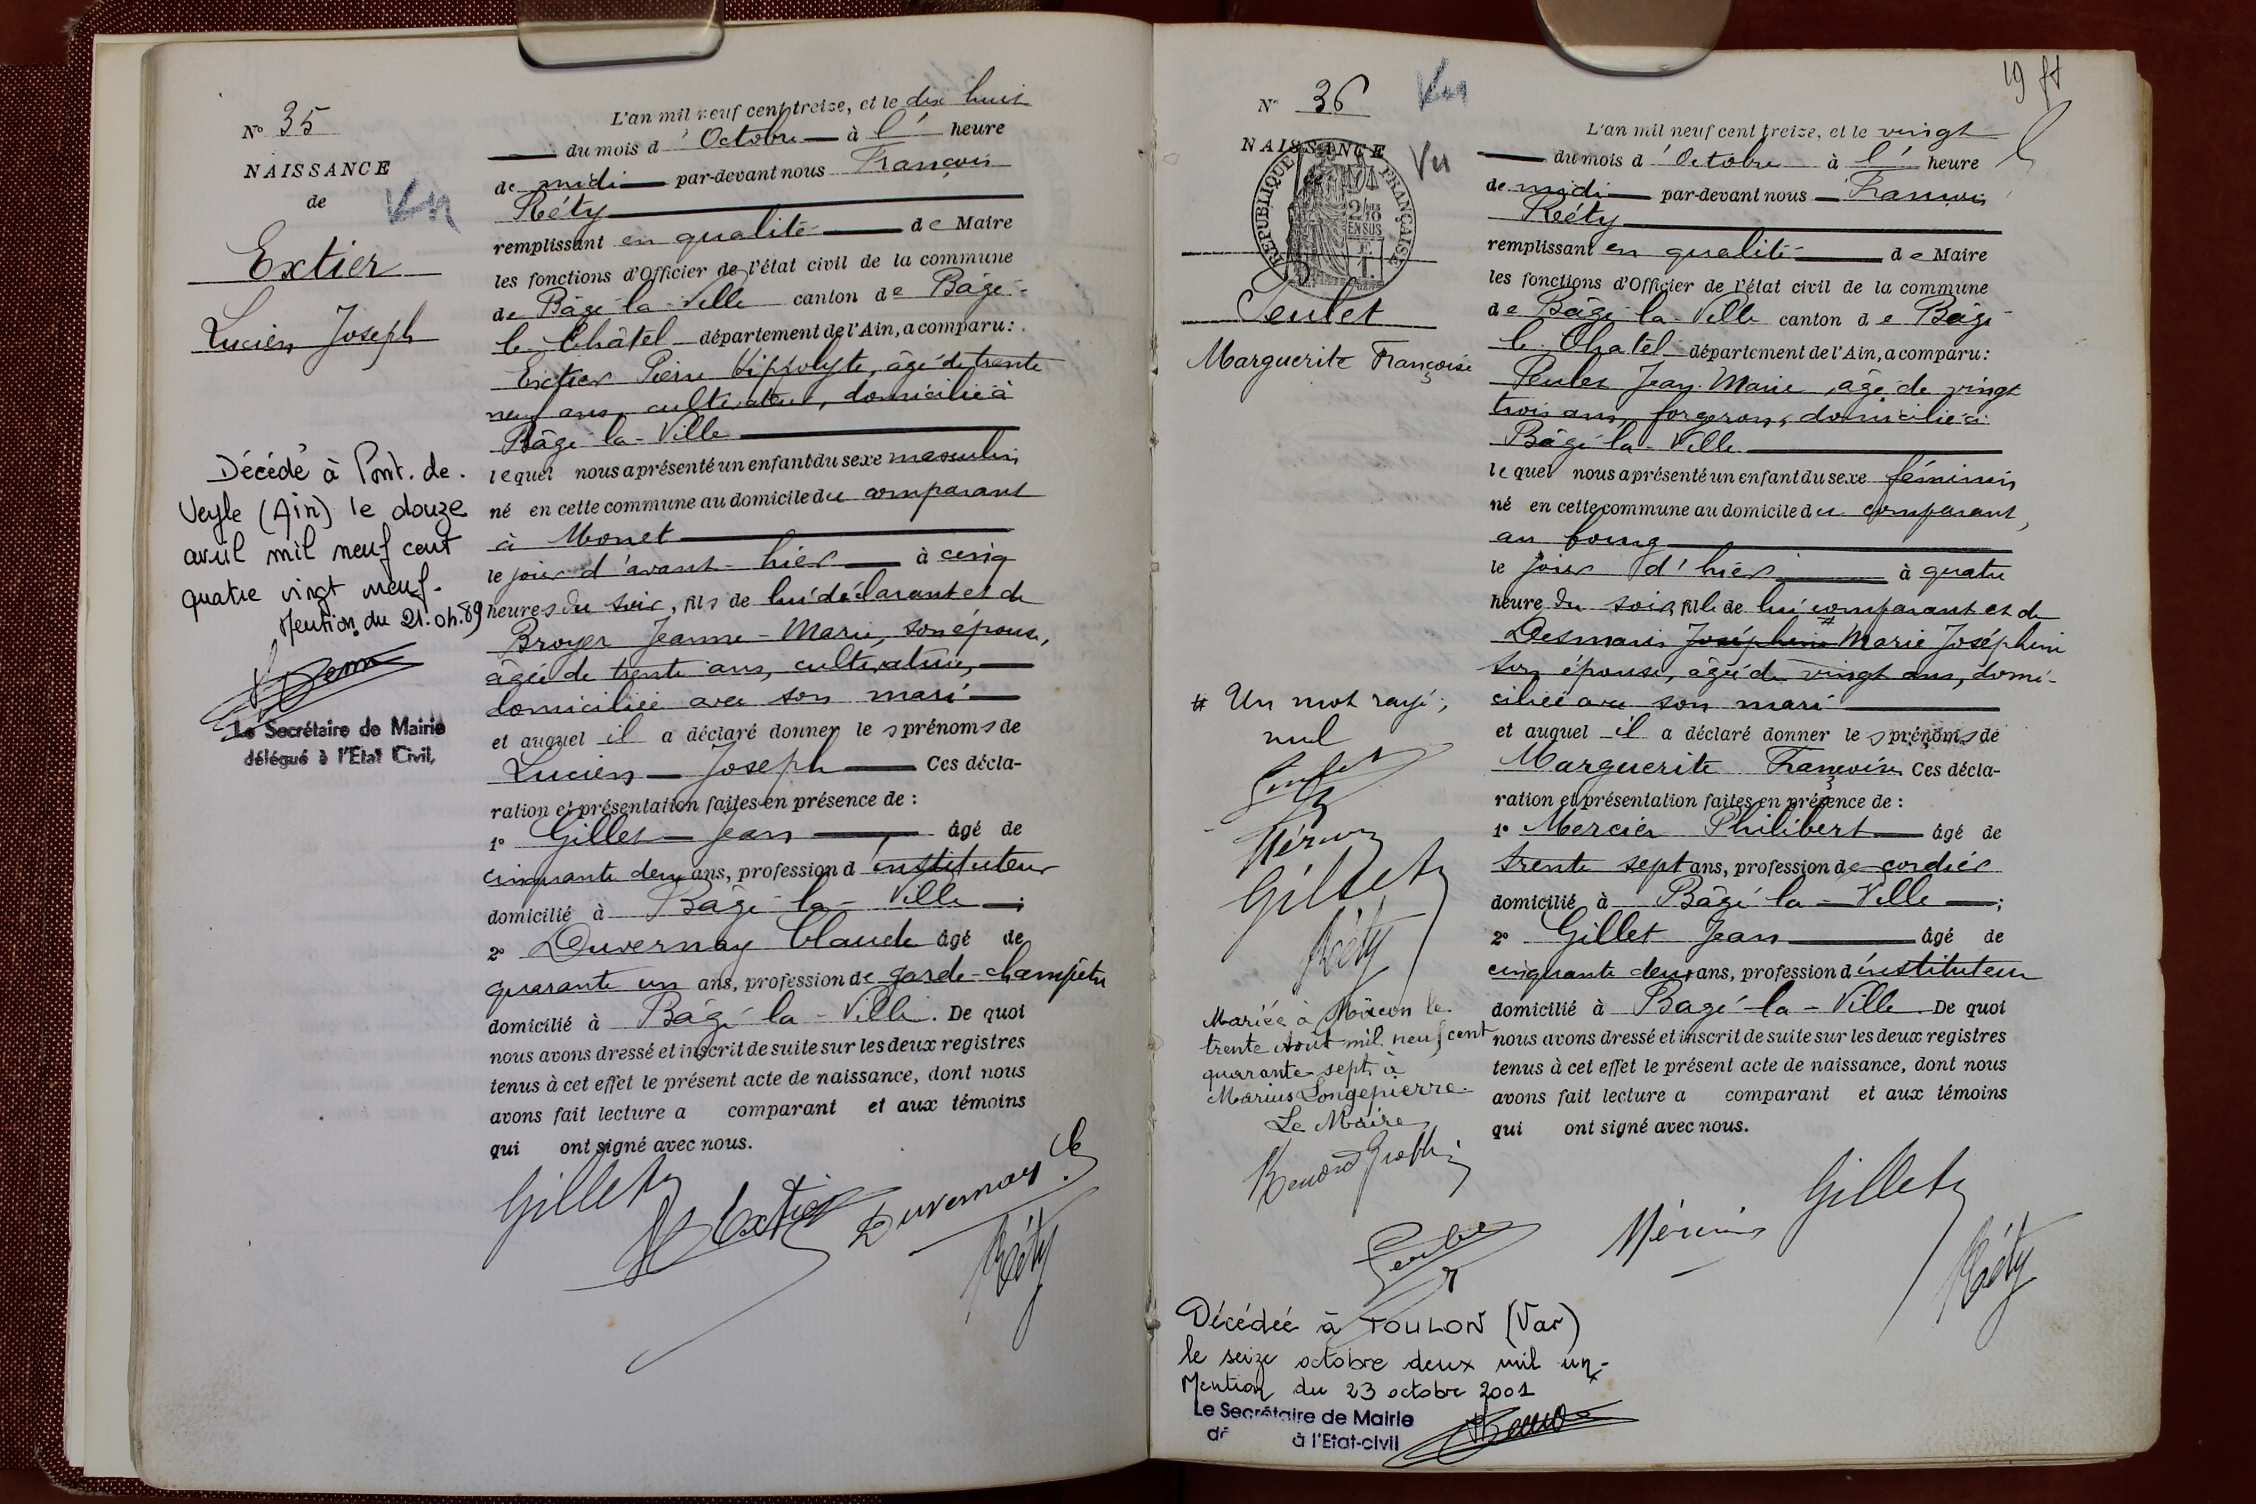 N° 35
NAISSANCE
de
Vu
Extier
Lucien Joseph
Décédé à Pont. de.
Veyle (Ain) le douze
avril mil neuf cent
quatre vingt neuf.
Mention du 21.04.89
Le Secrétaire de Mairie
délégué à l'Etat Civil,
L'an mil neuf cent treize, et le dix huit
du mois d'Octobre à l' heure
de midi par-devant nous François
Réty
remplissant en qualité de Maire
les fonctions d'Officier de l'état civil de la commune
de Bâgé-la-Ville canton de Bâgé-
le Châtel département de l'Ain, a comparu:
Extier Pierre Hippolyte, âgé de trente
neuf ans, cultivateur, domicilié à
Bâgé-la-Ville
lequel nous a présenté un enfant du sexe masculin
né en cette commune au domicile du comparant
à Monet
le jour d'avant-hier à cinq
heures du soir, fils de lui déclarant et de
Broyer Jeanne-Marie, son épouse,
âgée de trente ans, cultivatrice,
domiciliée avec son mari
et auquel il a déclaré donner les prénoms de
Lucien - Joseph Ces décla-
ration et présentation faites en présence de :
1° Gillet Jean, âgé de
cinquante deux ans, profession d'instituteur
domicilié à Bâgé-la-Ville ;
2° Duvernay Claude âgé de
quarante un ans, profession de garde-champêtre
domicilié à Bâgé-la-Ville. De quoi
nous avons dressé et inscrit de suite sur les deux registres
tenus à cet effet le présent acte de naissance, dont nous
avons fait lecture a comparant et aux témoins
qui ont signé avec nous.
Gillet Extier Duvernay Cl Réty
N° 36
Vu
NAISSANCE
Vu
REPUBLIQUE FRANÇAISE
Peulet
Marguerite Françoise
# Un mot rayé,
nul
Peulet
Mercier
Gillet
Réty
Mariée à Mâcon le
trente Aout mil neuf cent
quarante sept à
Marius Longepierre
Le Maire
L'an mil neuf cent treize, et le vingt
du mois d'Octobre à l' heure
de midi par-devant nous François
Réty
remplissant en qualité de Maire
les fonctions d'Officier de l'état civil de la commune
de Bâgé-la-Ville canton de Bâgé-
le Chatel département de l'Ain, a comparu:
Peulet Jean-Marie, âgé de vingt
trois ans, forgeron, domicilié à
Bâgé-la-Ville
lequel nous a présenté un enfant du sexe féminin
né en cette commune au domicile du comparant,
au bourg
le jour d'hier à quatre
heure du soir, fille de lui comparant et de
Desmaris Joséphine # Marie Joséphine
son épouse, âgée de vingt ans, domi-
ciliée avec son mari
et auquel il a déclaré donner les prénoms de
Marguerite Françoise Ces décla-
ration et présentation faites en présence de :
1° Mercier Philibert âgé de
trente sept ans, profession de cordier
domicilié à Bâgé-la-Ville ;
2° Gillet Jean âgé de
cinquante deux ans, profession d'instituteur
domicilié à Bagé-la-Ville. De quoi
nous avons dressé et inscrit de suite sur les deux registres
tenus à cet effet le présent acte de naissance, dont nous
avons fait lecture a comparant et aux témoins
qui ont signé avec nous.
Peulet Mercier Gillet Réty
Décédée à TOULON (Var)
le seize octobre deux mil un.
Mention du 23 octobre 2001
Le Secrétaire de Mairie
dé à l'Etat-civil